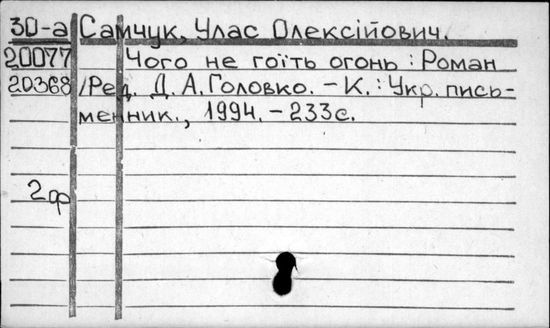 30-а Самчук, Улас Олексійович.
20077 Чого не гоїть огонь : Роман
20368 /Ред. Д. А. Головко. – К. : Укр. пись-
менник., 1994. – 233с.
2ф